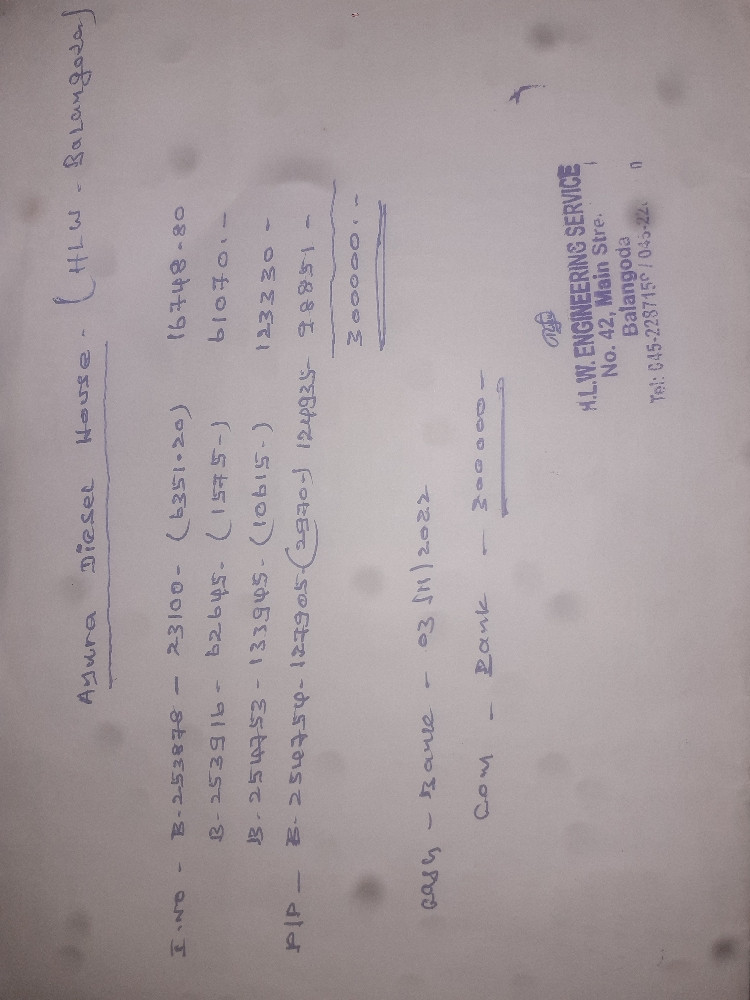 Ayura Diesel House - (HLW - Balangoda)
I.NO - B-253878 - 23100- (6351.20) 16748.80
B-253916 - 62645- (1575-) 61070.-
B-254753 - 133945- (10615-) 123330 -
P/P - B-254754- 127905-(2970-) 124935- 98851 -
300000.-
cash - Bank - 03/11/2022
Com - Bank - 300000-
H.L.W. ENGINEERING SERVICE
No. 42, Main Stre
Balangoda
Tel: 045-228715 / 045-22